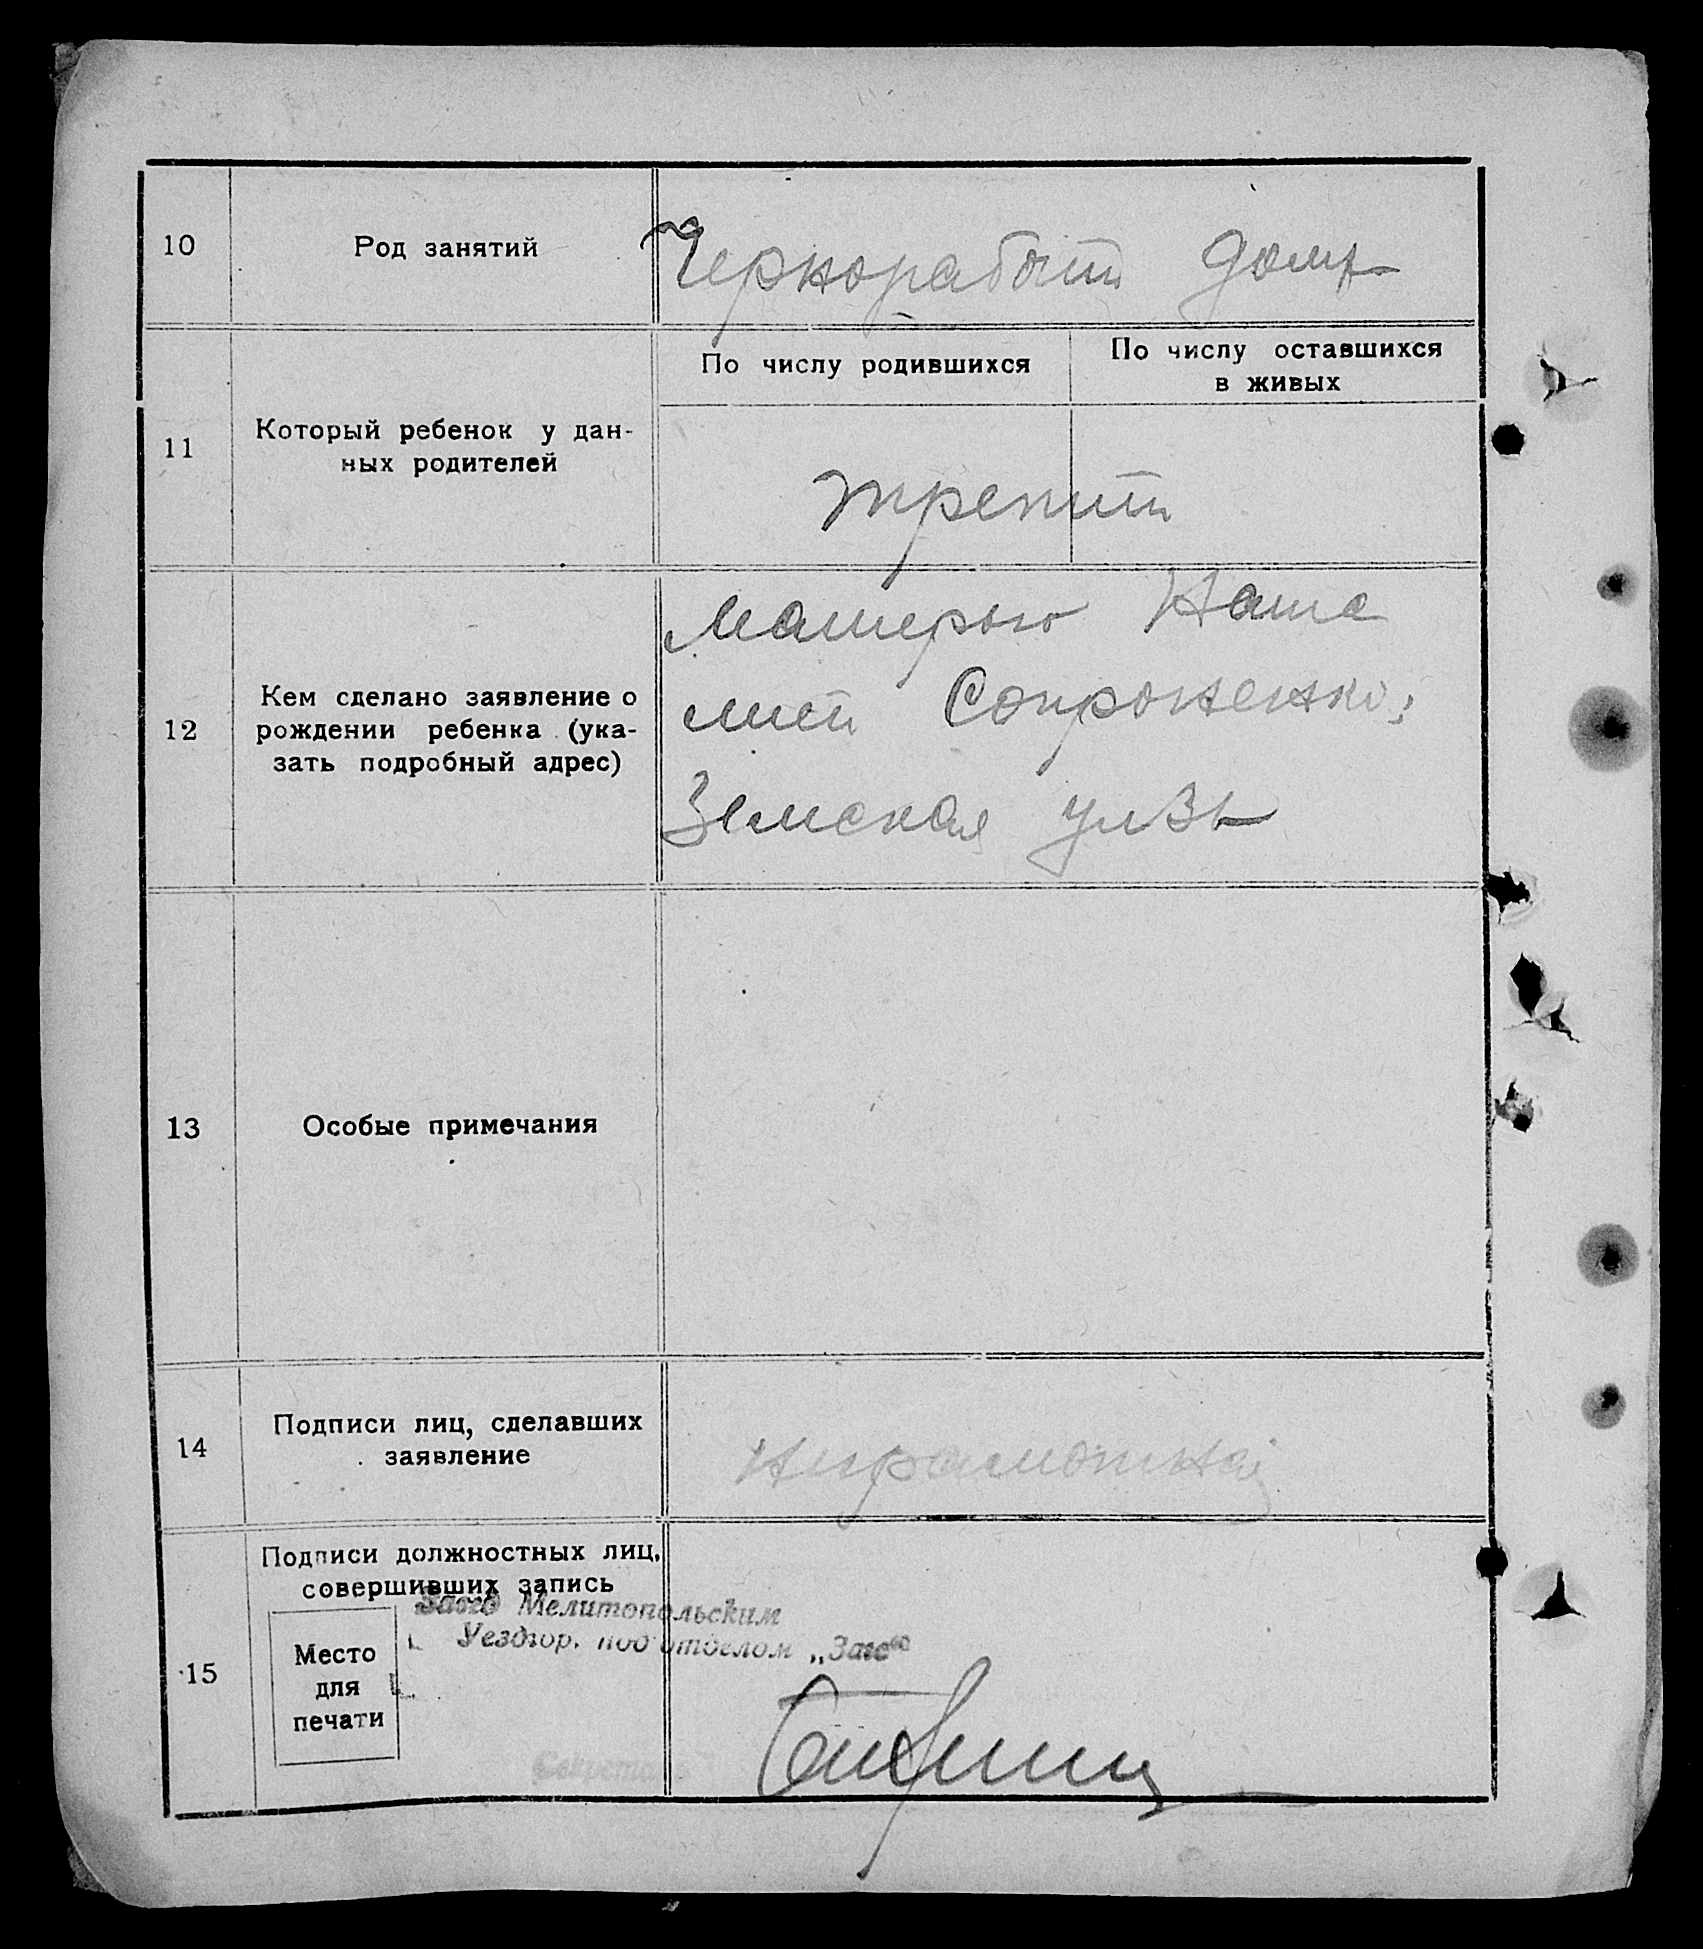 10 Род занятий Чернорабочий дома
По числу родившихся По числу оставшихся
в живых
11 Который ребенок у дан-
ных родителей
третий
12 Кем сделано заявление о
рождении ребенка (ука-
зать подробный адрес)
Матерью Ната
лией Сопроненко,
Земская ул
13 Особые примечания
14 Подписи лиц, сделавших
заявление
нграмотная
15 Подписи должностных лиц,
совершивших запись
Завед Мелитопольским
Уездгор. подотделом „Загс“
Место
для
печати
Секретарь